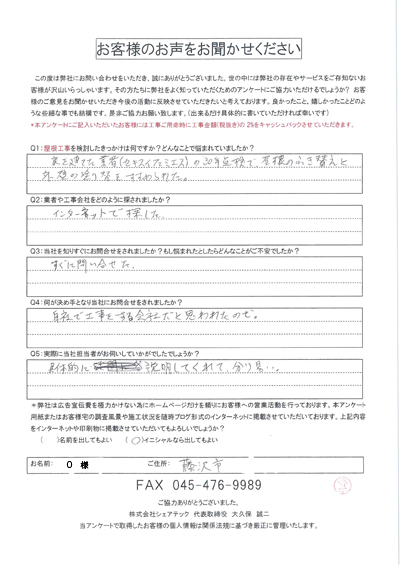 お客様のお声をお聞かせください
この度は弊社にお問い合わせをいただき、誠にありがとうございました。世の中には弊社の存在やサービスをご存知ないお
客様が沢山いらっしゃいます。その方たちに弊社をよく知っていただくためのアンケートにご協力いただけるでしょうか？ お客
様のご意見をお聞かせいただき今後の活動に反映させていただきたいと考えております。良かったこと、嬉しかったことどのよ
うな些細な事でも結構です。是非ご協力お願い致します。（出来るだけ具体的に書いていただければ幸いです）
*本アンケートにご記入いただいたお客様には工事ご用命時に工事金額(税抜き)の 2%をキャッシュバックさせていただきます。
Q1：屋根工事を検討したきっかけは何ですか？どんなことで悩まれていましたか？
家を建てた業者(セキスイファミエス)の30年点検で、屋根のふき替えと
外壁の塗り替をすすめられた。
Q2：業者や工事会社をどのように探されましたか？
インターネットで探した。
Q3：当社を知りすぐにお問合せをされましたか？もし悩まれたとしたらどんなことがご不安でしたか？
すぐに問い合せた。
Q4：何が決め手となり当社にお問合せをされましたか？
自社で工事をする会社だと思われたので。
Q5：実際に当社担当者がお伺いしていかがでしたでしょうか？
具体的に 説明してくれて、分り易い。
*弊社は広告宣伝費を極力かけない為にホームページだけを頼りにお客様への営業活動を行っております。本アンケート
用紙またはお客様宅の調査風景や施工状況を随時ブログ形式のインターネットに掲載させていただいております。上記内容
をインターネットや印刷物に掲載させていただいてもよろしいでしょうか？
（　）名前を出してもよい （○）イニシャルなら出してもよい
お名前： O 様 ご住所： 藤沢市
FAX 045-476-9989
ご協力ありがとうございました。
株式会社シェアテック 代表取締役 大久保 誠二
当アンケートで取得したお客様の個人情報は関係法規に基づき厳正に管理いたします。